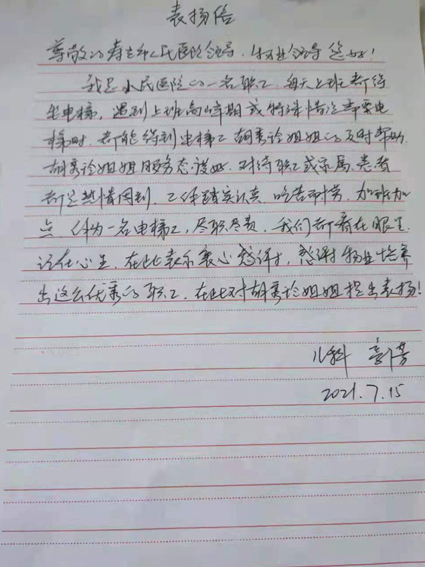 表扬信
尊敬的寿光市人民医院领导、物业领导您好!
我是人民医院的一名职工,每天上班都得
坐电梯,遇到上班高峰期或特殊情况需要电
梯时,都能得到电梯工胡秀论姐姐的及时帮助,
胡秀论姐姐服务态度好,对待职工或家属、患者
都是热情周到,工作踏实认真,吃苦耐劳,加班加
点,作为一名电梯工,尽职尽责,我们都看在眼里
记在心里,在此表示衷心感谢,感谢物业培养
出这么优秀的职工,在此对胡秀论姐姐提出表扬!
儿科
2021.7.15